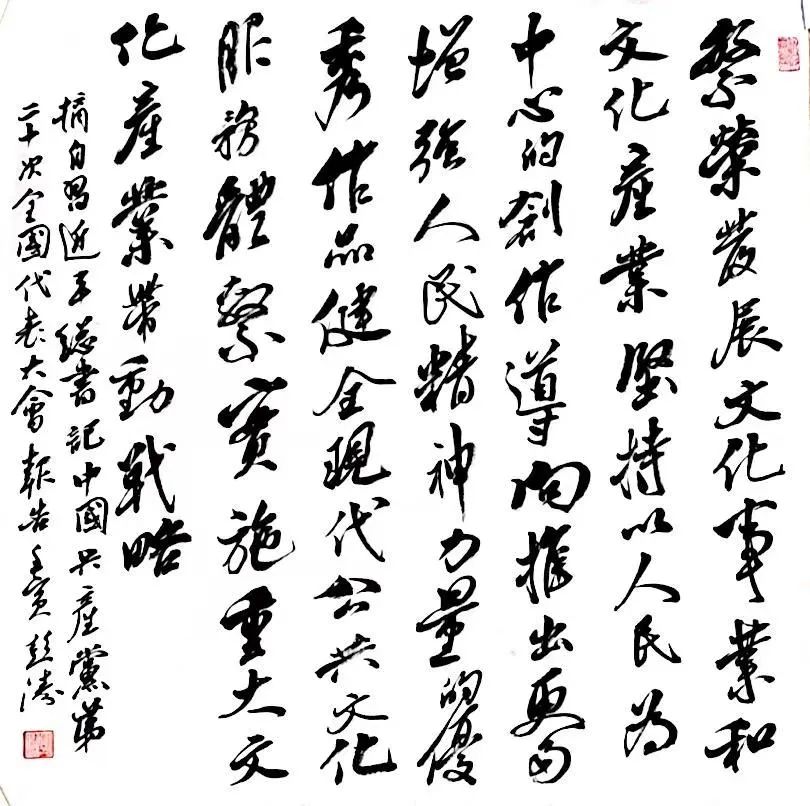 繁榮發展文化事業和
文化產業堅持以人民為
中心的創作導向推出更多
增強人民精神力量的優
秀作品健全現代公共文化
服務體繫實施重大文
化產業帶動戰略
摘自習近平總書記中國共產黨第
二十次全國代表大會報告壬寅彭濤